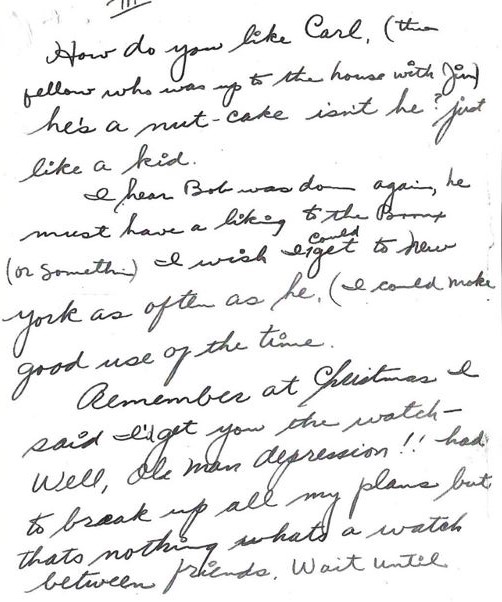 III
How do you like Carl, (the
fellow who was up to the house with Jim)
he's a nut-cake isn't he? just
like a kid.
I hear Bob was down again, he
must have a liking to the Bronx
(or somethin) I wish I could get to New
York as often as he. (I could make
good use of the time.
Remember at Christmas I
said I'd get you the watch-
Well, Ole Man depression!! had
to break up all my plans but
thats nothing whats a watch
between friends. Wait until